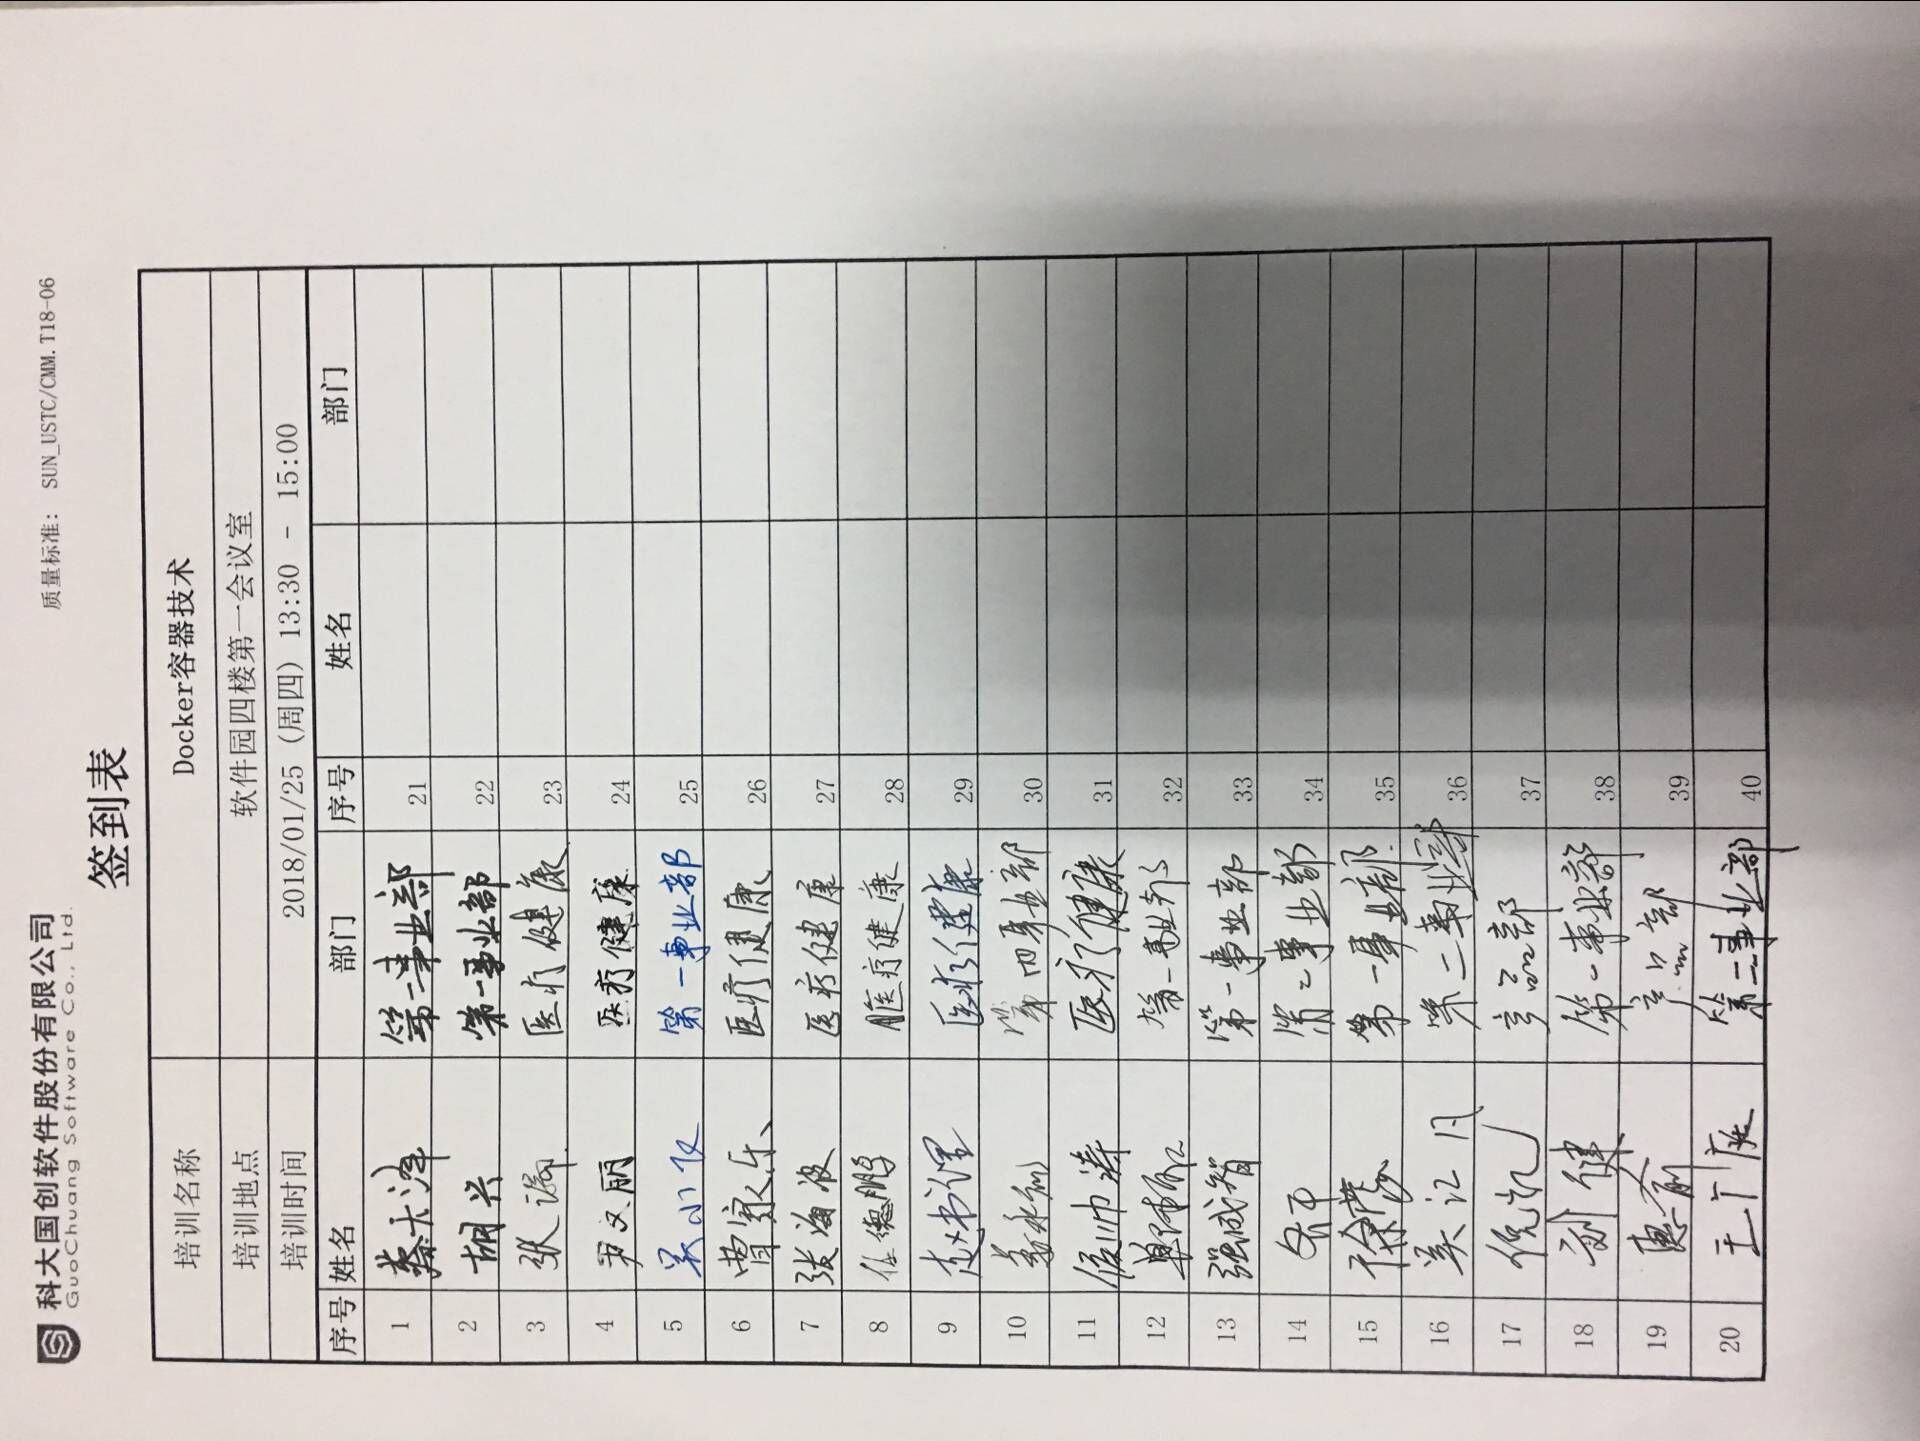 科大国创软件股份有限公司
GuoChuang Software Co., Ltd.
质量标准: SUN_USTC/CMM.T18-06
签到表
培训名称 Docker容器技术
培训地点 软件园四楼第一会议室
培训时间 2018/01/25 (周四) 13:30 - 15:00
序号 姓名 部门 序号 姓名 部门
1 第二事业部 21
2 胡兴 第一事业部 22
3 张 医疗健康 23
4 尹文丽 医疗健康 24
5 吴小仪 第一事业部 25
6 曹家乐 医疗健康 26
7 张海波 医疗健康 27
8 任德鹏 医疗健康 28
9 赵书渥 医疗健康 29
10 第四事业部 30
11 医疗健康 31
12 第一事业部 32
13 强成智 第一事业部 33
14 第二事业部 34
15 徐 第一事业部 35
16 吴江月 第二事业部 36
17 倪凯 产品部 37
18 刘健 第一事业部 38
19 惠俞 产品部 39
20 王广庆 第二事业部 40